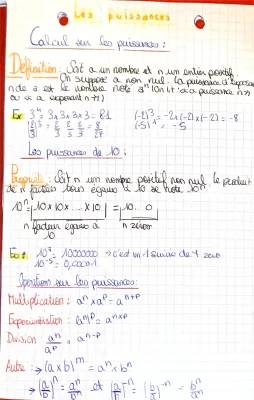 Les puissances
Calcul sur les puissances :
Définition : Soit a un nombre et n un entier positif
On suppose a non nul. La puissance d'exposant
n de a est le nombre noté aⁿ (on lit : a puissance n
ou a exposant n)
Ex : 3⁴ = 3x3x3x3 = 81 (-2)³ = -2x(-2)x(-2) = -8
Les puissances de 10 :
Propriété : Soit n un nombre positif non nul le produit
de n facteurs tous égaux à 10 se note 10ⁿ.
10ⁿ = 10x10x...x10 = 10...0
n facteurs égaux à n zéros
10
Ex : 10⁷ = 10000000 → c'est un 1 suivi de 7 zéro
10⁻⁵ = 0,00001
Opérations sur les puissances :
Multiplication : aⁿ x aᵖ = aⁿ⁺ᵖ
Exponentiation : (aⁿ)ᵖ = aⁿˣᵖ
Division aⁿ/aᵖ = aⁿ⁻ᵖ
Autre : → (a x b)ᵐ = aⁿ x bⁿ
→ (a/b)ⁿ = aⁿ/bⁿ et (a/b)⁻ⁿ = (b/a)⁻ⁿ = bⁿ/aⁿ